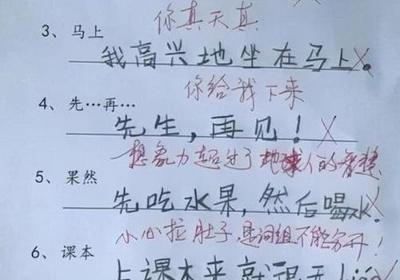 你真天真
3、马上
我高兴地坐在马上。
你给我下来
4、先…再…
先生，再见！
想象力超过了地球人的智慧
5、果然
先吃水果，然后喝水.
小心拉肚子,是词组不能分开!
6、课本
上课本来就很无